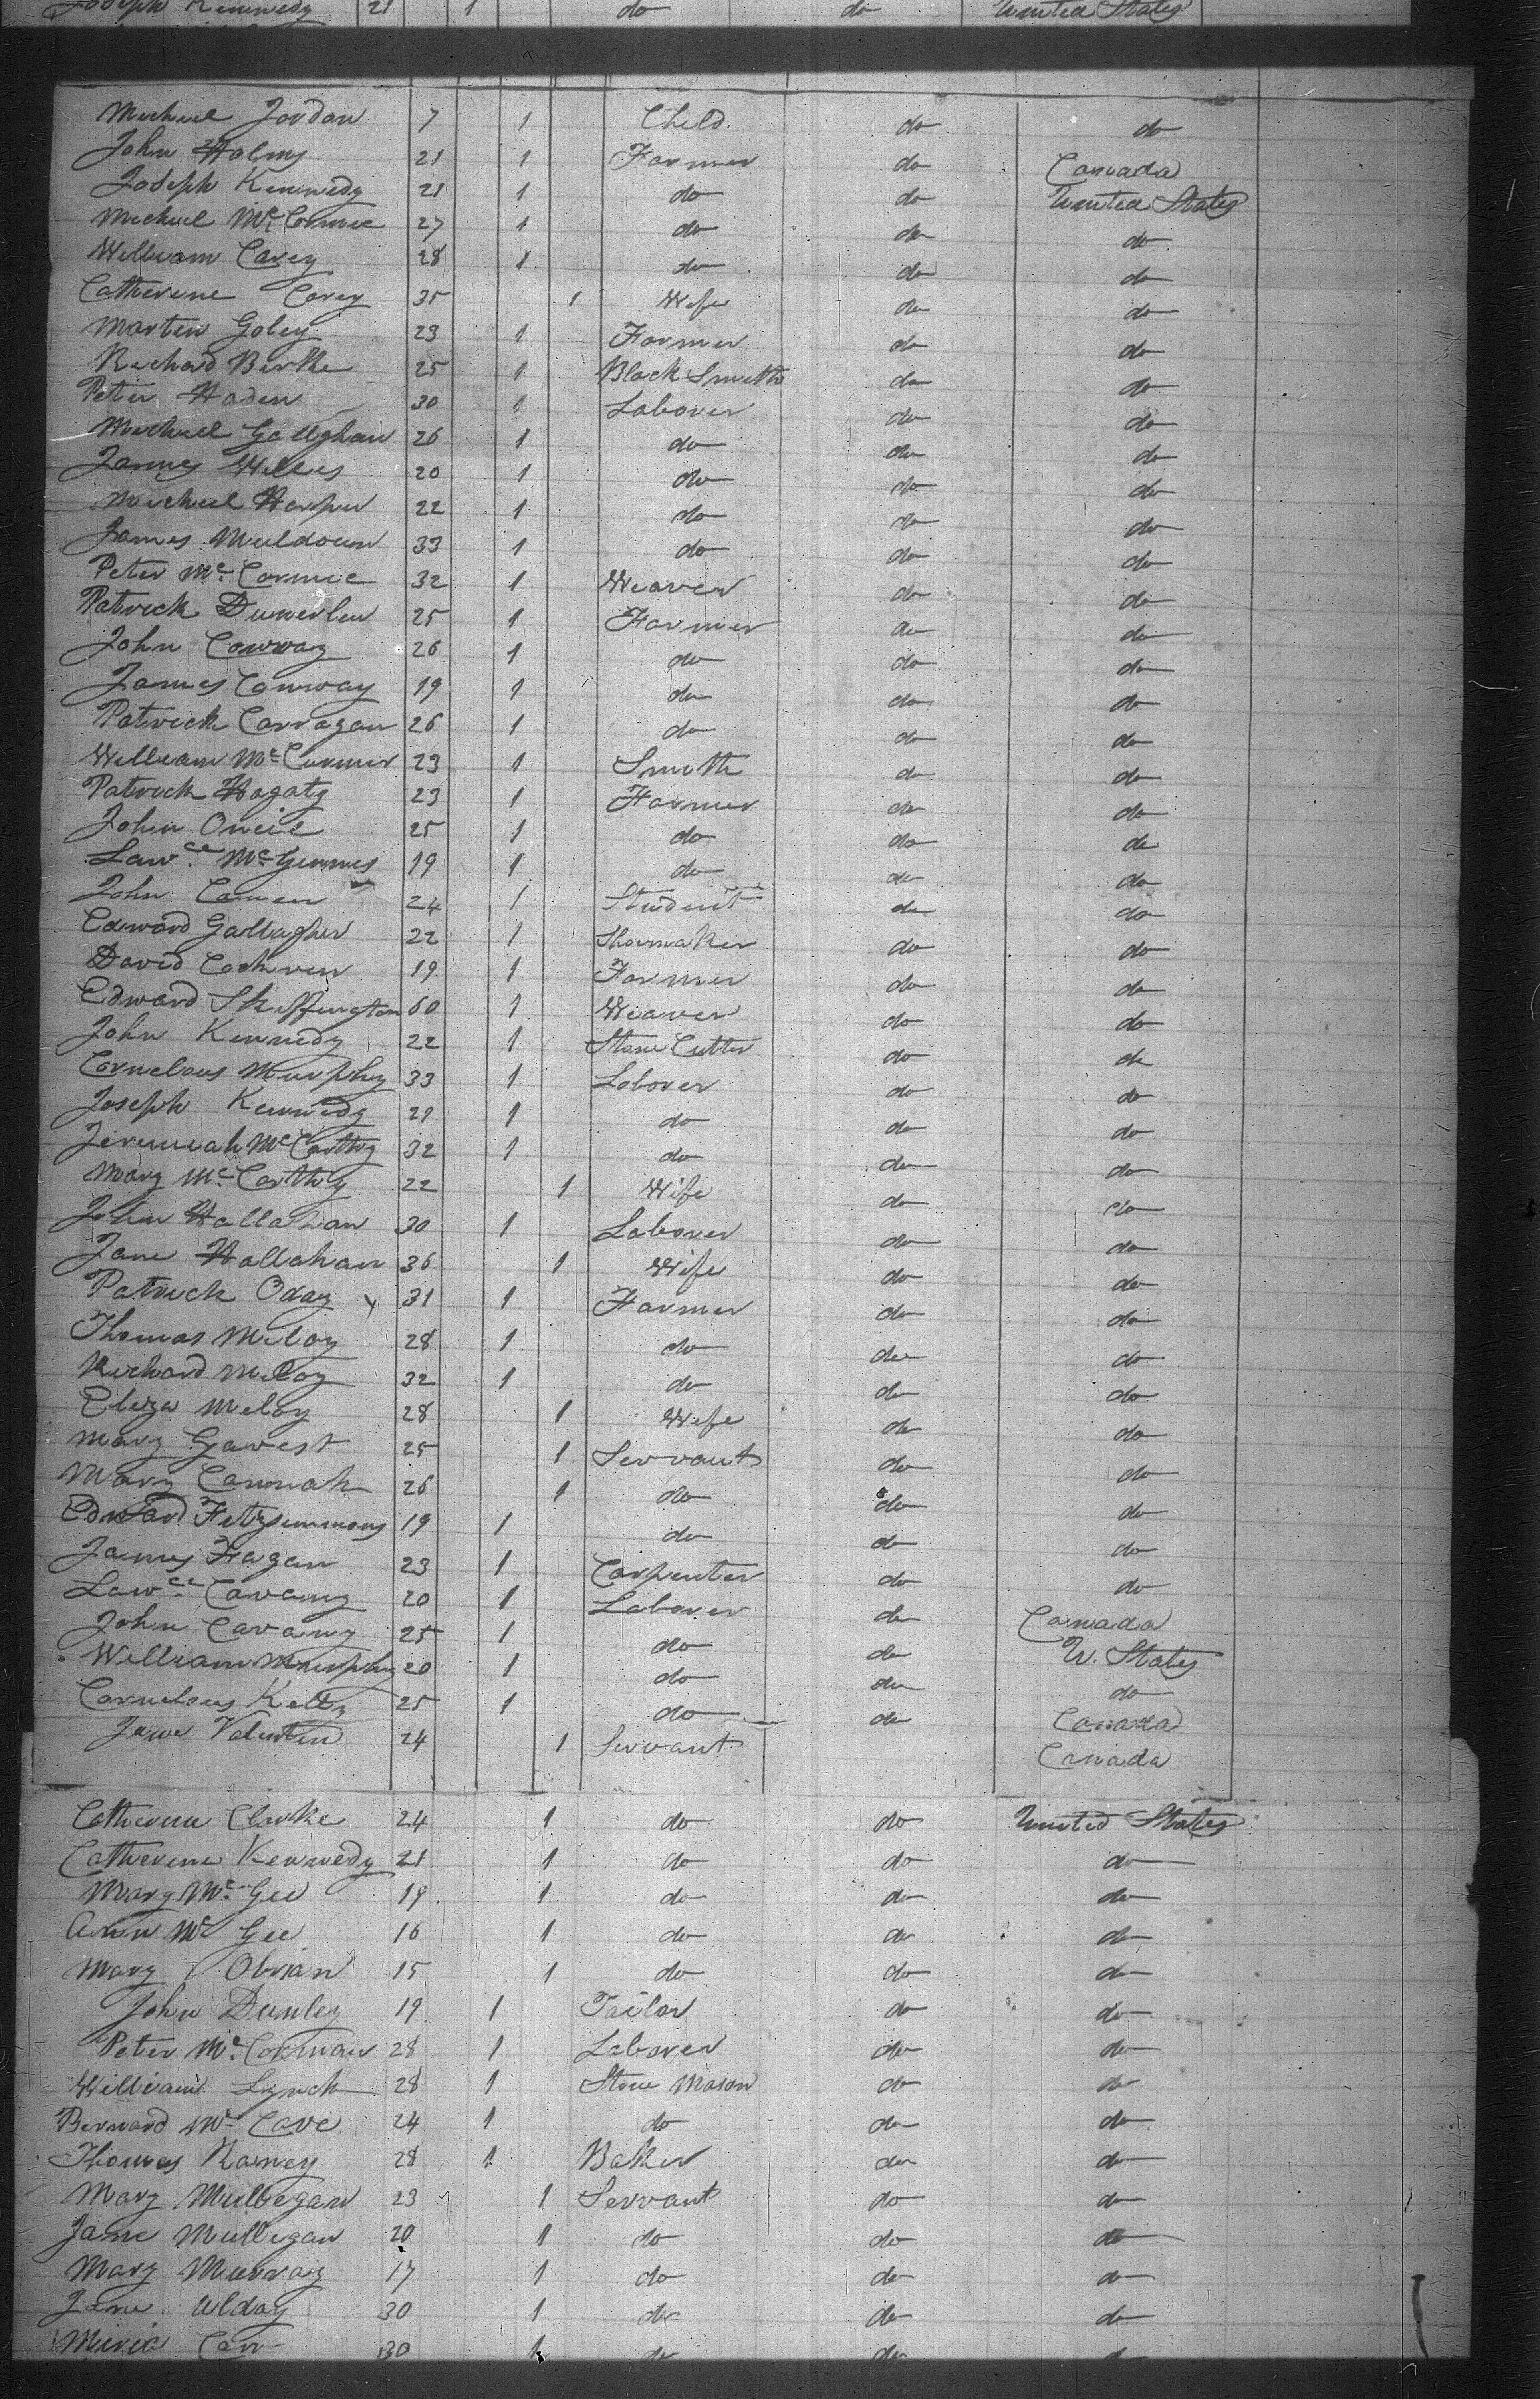 Joseph Kennedy 21 1 do do United States
Michael Jordan 7 1 Child. do do
John Holms 21 1 Farmer do Canada
Joseph Kennedy 21 1 do do United States
Michael Mc Cormic 27 1 do do do
William Carey 28 1 do do do
Catherine Carey 35 1 Wife do do
Martin Goley 23 1 Farmer do do
Richard Birke 25 1 Black Smith do do
Peter Haden 30 1 Laborer do do
Michael Gallghan 26 1 do do do
James Willis 20 1 do do do
Michael Harper 22 1 do do do
James Muldoun 33 1 do do do
Peter Mc Cormic 32 1 Weaver do do
Patrick 25 1 Farmer do do
John Conway 26 1 do do do
James Conway 19 1 do do do
Patrick Carragan 26 1 do do do
William Mc 23 1 Smith do do
Patrick Hagaty 23 1 Farmer do do
John Oneil 25 1 do do do
Lawce Mc 19 1 do do do
John 24 1 Student do do
Edward Gallagher 22 1 Shoemaker do do
David Cochren 19 1 Farmer do do
Edward Skeffington 60 1 Weaver do do
John Kennedy 22 1 Stone Cutter do do
Cornelous Murphy 33 1 Laborer do do
Joseph Kennedy 21 1 do do do
Jeremiah Mc Carthy 32 1 do do do
Mary Mc Carthy 22 1 Wife do do
John Hallahan 30 1 Laborer do do
Jane Hallahan 36 1 Wife do do
Patrick Oday 31 1 Farmer do do
Thomas Meloy 28 1 do do do
Richard Meloy 32 1 do do do
Eliza Meloy 28 1 Wife do do
Mary Gavest 25 1 Servant do do
Mary Cannah 26 1 do do do
Edward Fitzsimmons 19 1 do do do
James Fagan 23 1 Carpenter do do
Lawce Cavany 20 1 Laborer do Canada
John Cavany 25 1 do do U. States
William Murphy 20 1 do do do
Cornelous Kelly 25 1 do do Canada
Jane Valentin 24 1 Servant Canada
Catherine Clarke 24 1 do do United States
Catherine Kennedy 21 1 do do do
Mary Mc Gee 19 1 do do do
Ann Mc Gee 16 1 do do do
Mary Obrian 15 1 do do do
John Dunley 19 1 Tailor do do
Peter Mc Cormau 28 1 Laborer do do
William Lynch 28 1 Stone Mason do do
Bernard Mc Cave 24 1 do do do
Thomas Raney 28 1 Baker do do
Mary Mullegan 23 1 Servant do do
Jane Mullegan 20 1 do do do
Mary Murray 17 1 do do do
Jane Alday 30 1 do do do
Miria Carr 30 1 do do do